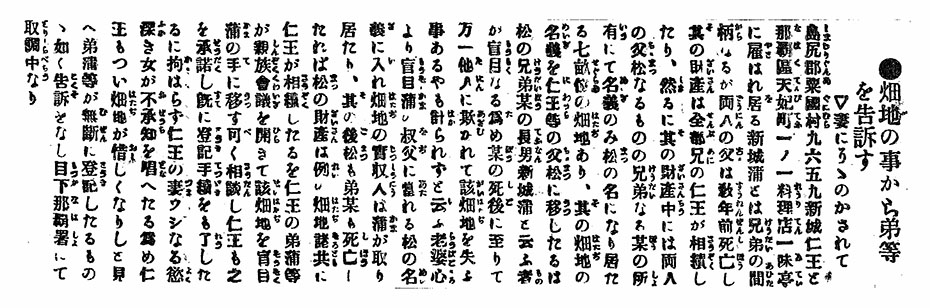 ●畑地の事から弟等
を告訴す
▽妻にそゝのかされて
島尻郡粟國村九六五九新城仁王と
那覇區天妃町一ノ一料理店一味亭
に雇はれ居る新城蒲とは兄弟の間
柄なるが両人の父は数年前死亡し
其の財産は全部兄の仁王が相續し
たり、然るに其の財産中には両人
の父松なるものゝ兄弟なる某の所
有にて名義のみ松の名になり居た
る七畝位の畑地あり、其の畑地の
名義を仁王等の父松に移したるは
松の兄弟某の長男新城蒲と云ふ者
が盲目なる為め某の死後に至りて
万一他人に欺かれて該畑地を失ふ
事あるやも計られずと云ふ老婆心
より盲目蒲の叔父に當れる松の名
義に入れ畑地の實収入は蒲が取り
居たり、其の後松も弟某も死亡し
たれば松の財産は例の畑地諸共に
仁王が相續したるを仁王の弟蒲等
が親族會議を開きて該畑地を盲目
蒲の手に移す可く相談し仁王も之
を承諾し既に登記手續をも了した
るに拘はらず仁王の妻ウシなる慾
深き女が不承知を唱へたる為め仁
王もつい畑地が惜しくなりしと見
へ弟蒲等が無断に登記したるもの
ゝ如く告訴をなし目下那覇署にて
取調中なり